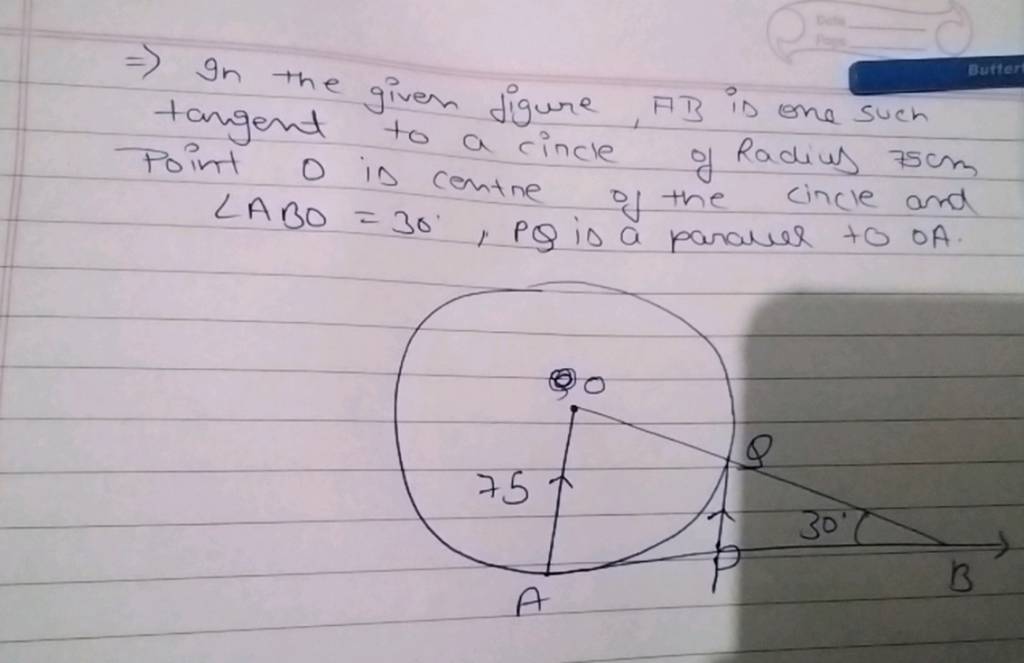 Date
Page
Butter
=> In the given figure, AB is one such
tangent to a circle of Radius 75cm
Point O is centre of the circle and
∠ABO = 30°, PQ is a parallel to OA.
O
Q
75
30°
P
B
A